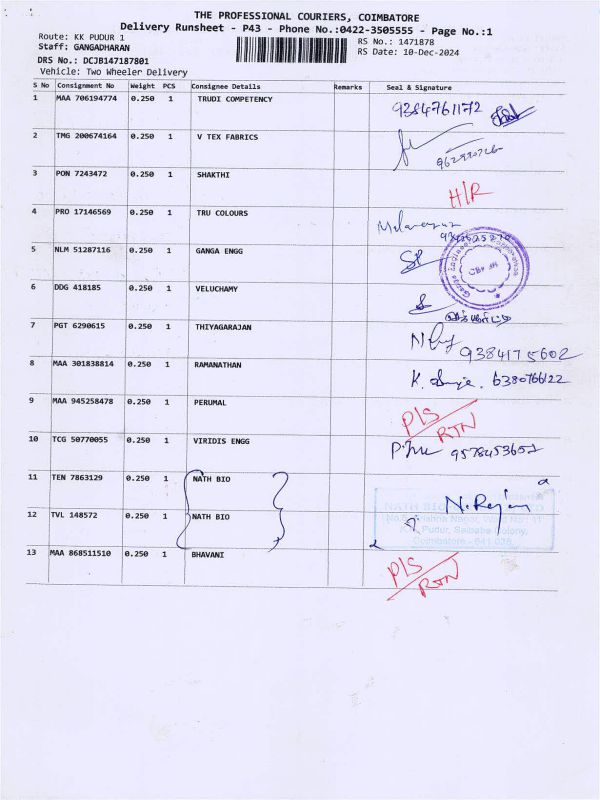 THE PROFESSIONAL COURIERS, COIMBATORE
Delivery Runsheet - P43 - Phone No.:0422-3505555 - Page No.:1
Route: KK PUDUR 1
RS No.: 1471878
Staff: GANGADHARAN
RS Date: 10-Dec-2024
DRS No.: DCJB147187801
Vehicle: Two Wheeler Delivery
S No Consignment No Weight PCS Consignee Details Remarks Seal & Signature
1 MAA 706194774 0.250 1 TRUDI COMPETENCY 9384761172
2 TMG 200674164 0.250 1 V TEX FABRICS
3 PON 7243472 0.250 1 SHAKTHI H/R
4 PRO 17146569 0.250 1 TRU COLOURS
5 NLM 51287116 0.250 1 GANGA ENGG
6 DDG 418185 0.250 1 VELUCHAMY
7 PGT 6290615 0.250 1 THIYAGARAJAN 9384175602
8 MAA 301838814 0.250 1 RAMANATHAN 6380766122
9 MAA 945258478 0.250 1 PERUMAL P/S RTN
10 TCG 50770055 0.250 1 VIRIDIS ENGG 9578453657
11 TEN 7863129 0.250 1 NATH BIO N. Rajan
12 TVL 148572 0.250 1 NATH BIO
NATH BIO
Krishna Nagar, Ward No : 11
K.K. Pudur, Saibaba Colony,
Coimbatore - 641 038
13 MAA 868511510 0.250 1 BHAVANI P/S RTN